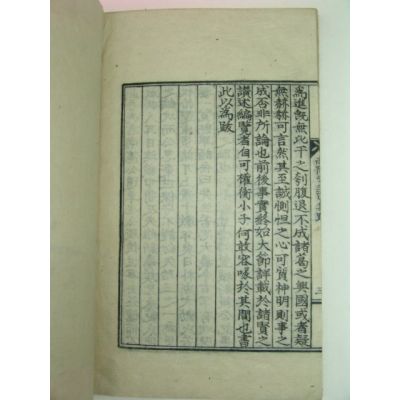 爲進旣無比干之刳腹退不成諸葛之興國或者疑
無赫赫可言然其至誠惻怛之心可質神明則事之
成否非所論也前後事實終如大節詳載於諸賢之
讚述編覽者自可權衡小子何敢容喙於其間也書
此以爲跋